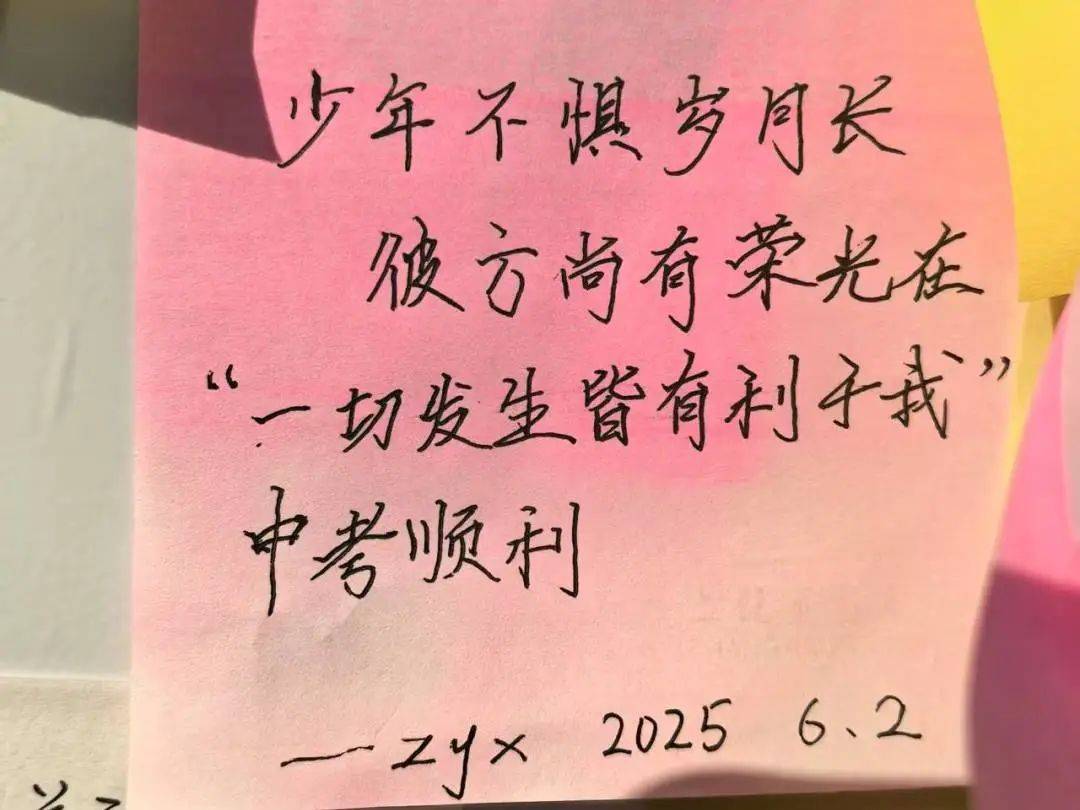 少年不惧岁月长
彼方尚有荣光在
“一切发生皆有利于我”
中考顺利
—zyx 2025 6.2